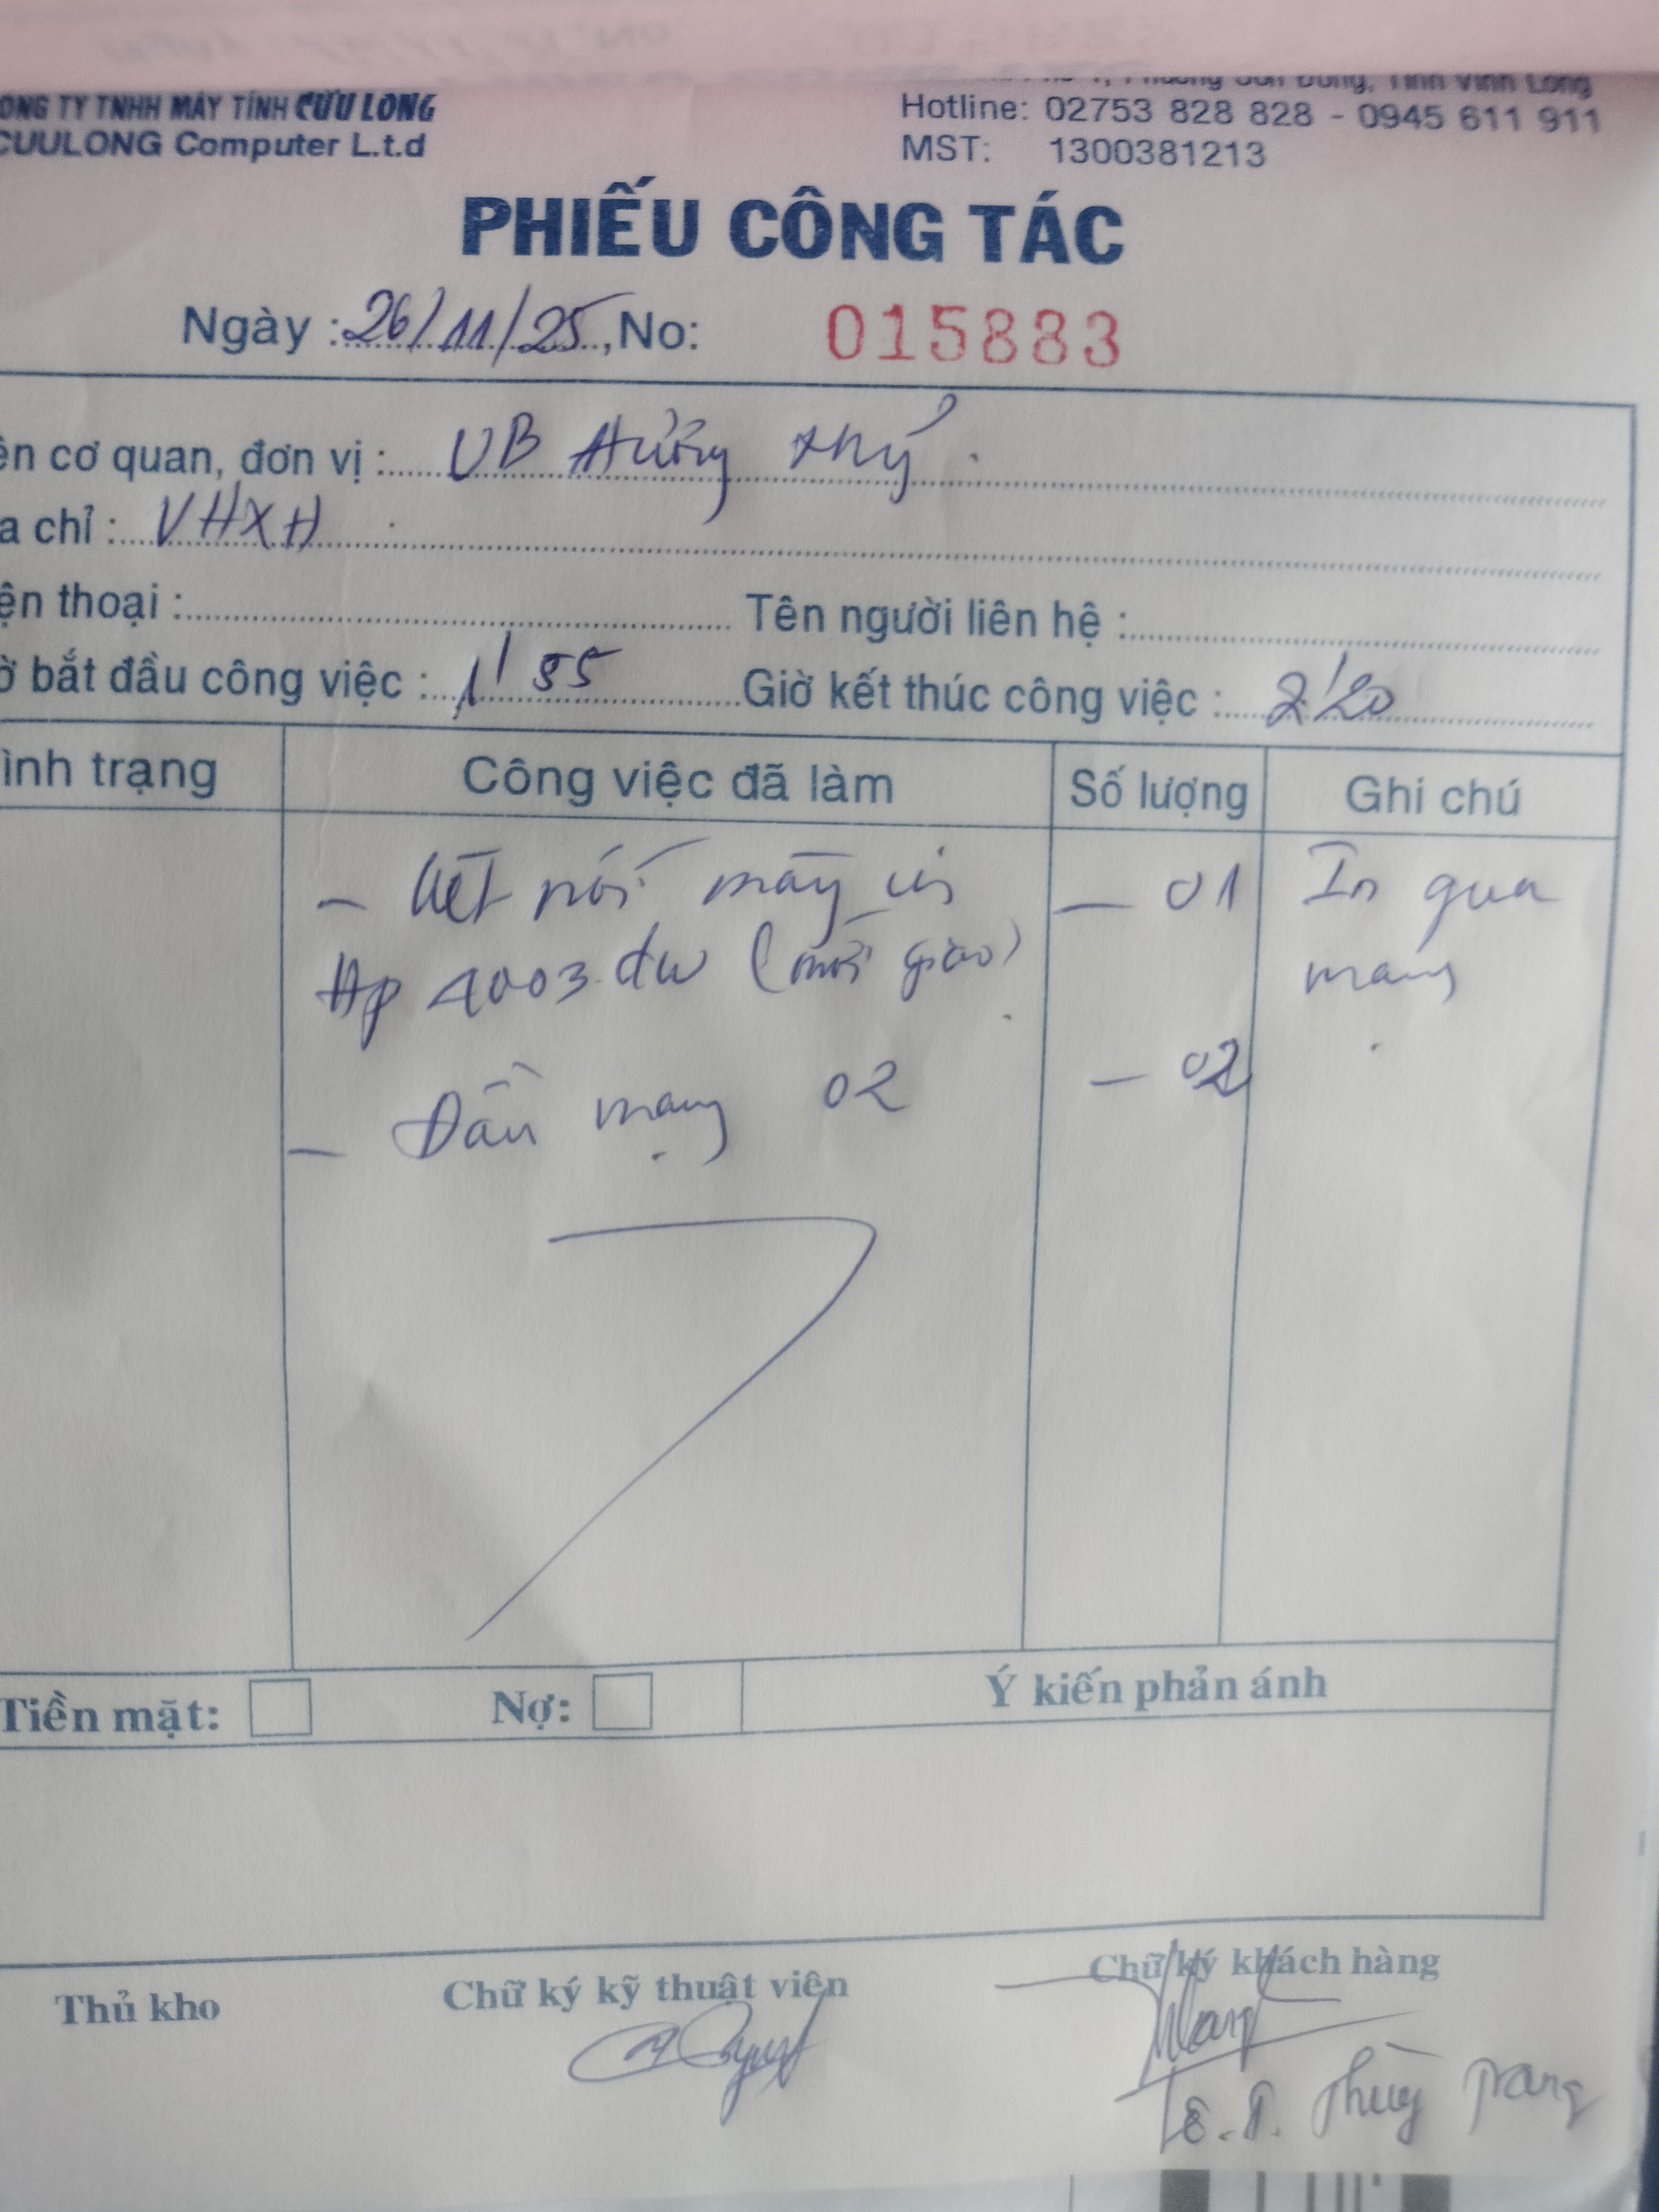 ÔNG TY TNHH MÁY TÍNH CỬU LONG
CUULONG Computer L.t.d
Phường Sơn Đông, Tỉnh Vĩnh Long
Hotline: 02753 828 828 - 0945 611 911
MST: 1300381213
PHIẾU CÔNG TÁC
Ngày : 26/11/25, No: 015883
ên cơ quan, đơn vị : UB Hưng
a chỉ : VHXH
ện thoại : Tên người liên hệ :
ờ bắt đầu công việc : 1' 55 Giờ kết thúc công việc : 2'20
ình trạng Công việc đã làm Số lượng Ghi chú
- Kết nối máy in - 01 In qua
Hp 4003 dw (mới giao) mạng
- Đầu mạng 02 - 02
Tiền mặt: Nợ: Ý kiến phản ánh
Thủ kho Chữ ký kỹ thuật viên Chữ ký khách hàng
Lê.T. Thùy Trang